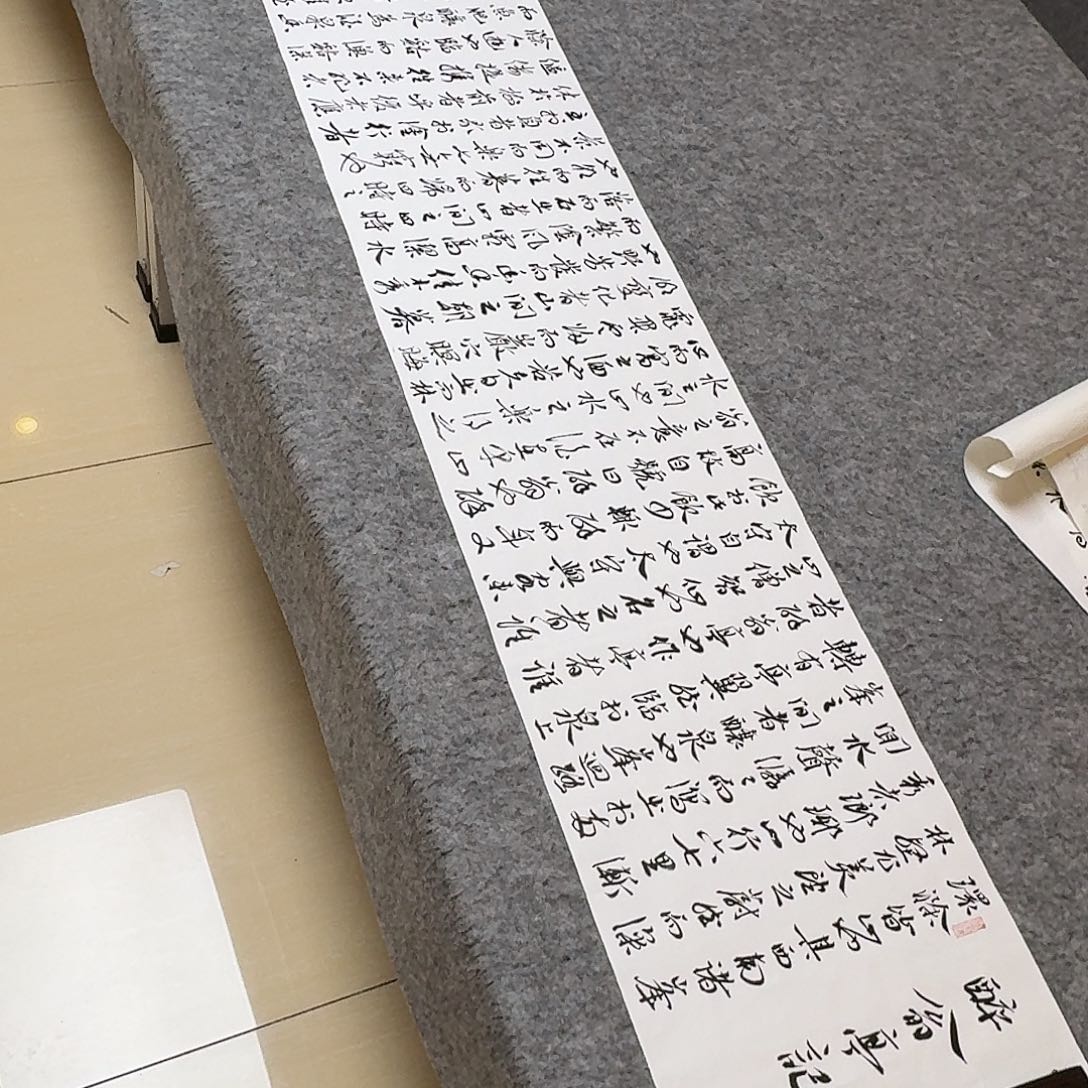 醉翁亭記
環滁皆山也其西南諸峯
林壑尤美望之蔚然而深
秀者瑯琊也山行六七里漸
聞水聲潺々而瀉出於兩
峯之間者釀泉也峯迴路
轉有亭翼然臨於泉上
者醉翁亭也作亭者誰
山之僧智仙也名之者誰
太守自謂也太守與客來
飲於此飲少輒醉而年又
高故自號曰醉翁也醉
翁之意不在酒在乎山
水之間也山水之樂得之
心而寓之酒也若夫日出而林
霏開雲歸而巖穴暝晦
明變化者山間之朝暮
也野芳發而幽香佳木秀
而繁陰風霜高潔水
落而石出者山間之四時
也朝而往暮而歸四時之
景不同而樂亦無窮也
至於負者歌於塗行者
休於樹前者呼後者應
傴僂提攜往來不絕者
滁人遊也臨谿而漁谿深
而魚肥釀泉為酒泉香